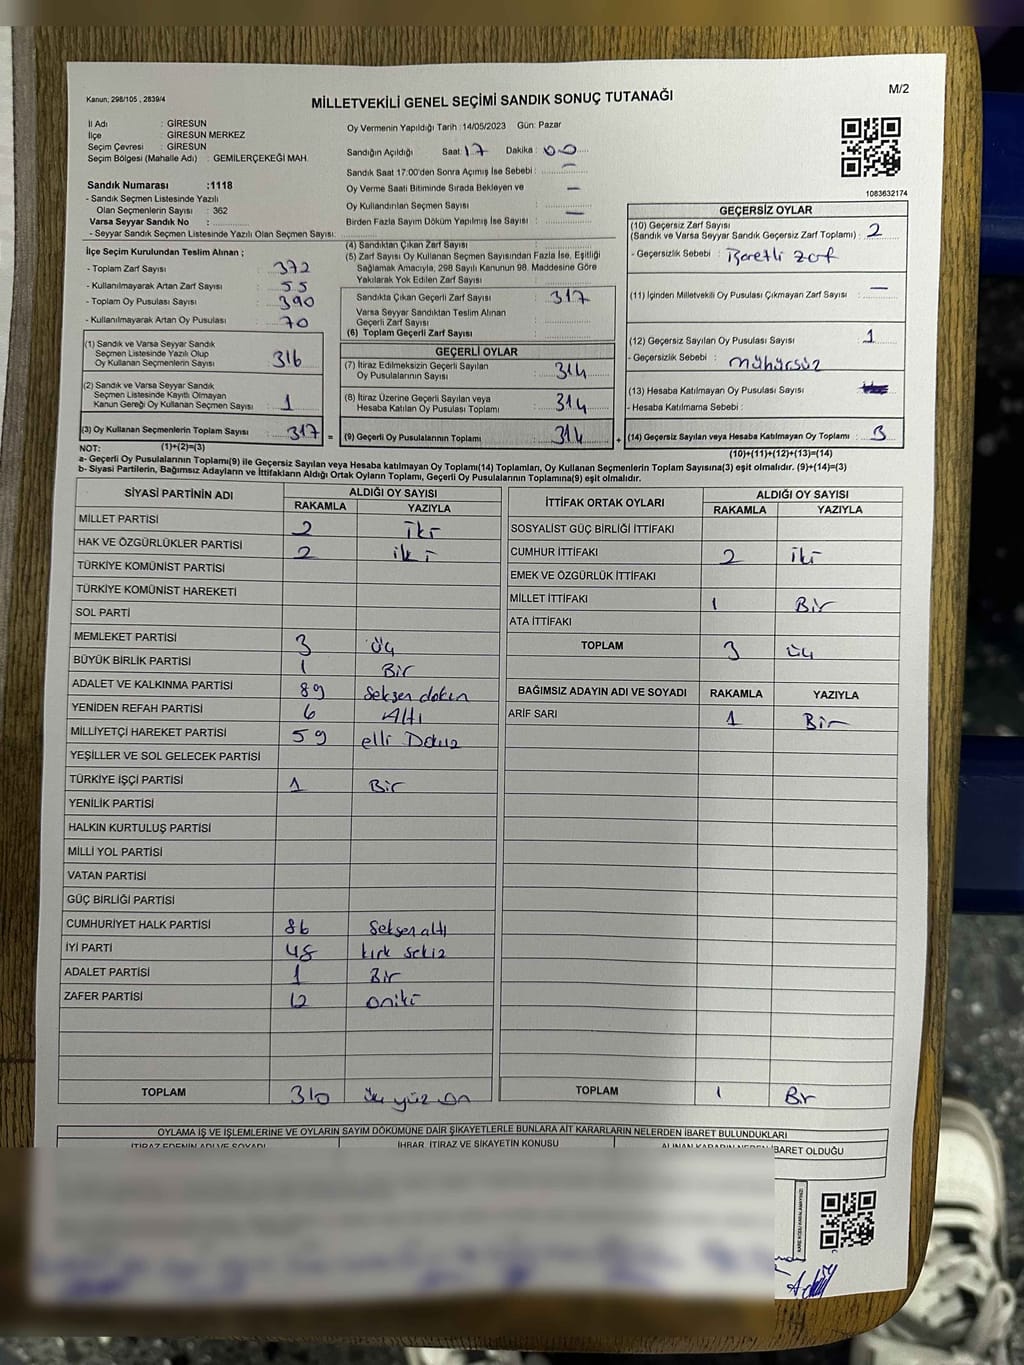 Kanun; 298/105 , 2839/4
MİLLETVEKİLİ GENEL SEÇİMİ SANDIK SONUÇ TUTANAĞI
M/2
İl Adı : GİRESUN
İlçe : GİRESUN MERKEZ
Seçim Çevresi : GİRESUN
Seçim Bölgesi (Mahalle Adı) : GEMİLERÇEKEĞİ MAH.
Sandık Numarası :1118
- Sandık Seçmen Listesinde Yazılı
Olan Seçmenlerin Sayısı : 362
Varsa Seyyar Sandık No :
- Seyyar Sandık Seçmen Listesinde Yazılı Olan Seçmen Sayısı:
Oy Vermenin Yapıldığı Tarih :14/05/2023 Gün: Pazar
Sandığın Açıldığı Saat: 17 Dakika : 00
Sandık Saat 17:00'den Sonra Açımış İse Sebebi : —
Oy Verme Saati Bitiminde Sırada Bekleyen ve
Oy Kullandırılan Seçmen Sayısı : —
Birden Fazla Sayım Döküm Yapılmış İse Sayısı : —
1083632174
İlçe Seçim Kurulundan Teslim Alınan ;
- Toplam Zarf Sayısı : 372
- Kullanılmayarak Artan Zarf Sayısı : 55
- Toplam Oy Pusulası Sayısı : 390
- Kullanılmayarak Artan Oy Pusulası : 70
(1) Sandık ve Varsa Seyyar Sandık
Seçmen Listesinde Yazılı Olup
Oy Kullanan Seçmenlerin Sayısı : 316
(2) Sandık ve Varsa Seyyar Sandık
Seçmen Listesinde Kayıtlı Olmayan
Kanun Gereği Oy Kullanan Seçmen Sayısı : 1
(3) Oy Kullanan Seçmenlerin Toplam Sayısı : 317 =
(1)+(2)=(3)
(4) Sandıktan Çıkan Zarf Sayısı :
(5) Zarf Sayısı Oy Kullanan Seçmen Sayısından Fazla İse, Eşitliği
Sağlamak Amacıyla, 298 Sayılı Kanunun 98. Maddesine Göre
Yakılarak Yok Edilen Zarf Sayısı :
Sandıkta Çıkan Geçerli Zarf Sayısı : 317
Varsa Seyyar Sandıktan Teslim Alınan
Geçerli Zarf Sayısı :
(6) Toplam Geçerli Zarf Sayısı :
GEÇERLİ OYLAR
(7) İtiraz Edilmeksizin Geçerli Sayılan
Oy Pusulalarının Sayısı : 314
(8) İtiraz Üzerine Geçerli Sayılan veya
Hesaba Katılan Oy Pusulası Toplamı : 314
(9) Geçerli Oy Pusulalarının Toplamı : 314 +
GEÇERSİZ OYLAR
(10) Geçersiz Zarf Sayısı
(Sandık ve Varsa Seyyar Sandık Geçersiz Zarf Toplamı) : 2
- Geçersizlik Sebebi : İşaretli zarf
(11) İçinden Milletvekili Oy Pusulası Çıkmayan Zarf Sayısı : —
(12) Geçersiz Sayılan Oy Pusulası Sayısı : 1
- Geçersizlik Sebebi : mühürsüz
(13) Hesaba Katılmayan Oy Pusulası Sayısı :
- Hesaba Katılmama Sebebi :
(14) Geçersiz Sayılan veya Hesaba Katılmayan Oy Toplamı : 3
(10)+(11)+(12)+(13)=(14)
NOT:
a- Geçerli Oy Pusulasının Toplamı(9) ile Geçersiz Sayılan veya Hesaba katılmayan Oy Toplamı(14) Toplamları, Oy Kullanan Seçmenlerin Toplam Sayısına(3) eşit olmalıdır. (9)+(14)=(3)
b- Siyasi Partilerin, Bağımsız Adayların ve İttifakların Aldığı Ortak Oyların Toplamı, Geçerli Oy Pusulalarının Toplamına(9) eşit olmalıdır.
SİYASİ PARTİNİN ADI ALDIĞI OY SAYISI
RAKAMLA YAZIYLA
MİLLET PARTİSİ 2 iki
HAK VE ÖZGÜRLÜKLER PARTİSİ 2 iki
TÜRKİYE KOMÜNİST PARTİSİ
TÜRKİYE KOMÜNİST HAREKETİ
SOL PARTİ
MEMLEKET PARTİSİ 3 üç
BÜYÜK BİRLİK PARTİSİ 1 Bir
ADALET VE KALKINMA PARTİSİ 89 Seksen dokuz
YENİDEN REFAH PARTİSİ 6 Altı
MİLLİYETÇİ HAREKET PARTİSİ 59 elli Dokuz
YEŞİLLER VE SOL GELECEK PARTİSİ
TÜRKİYE İŞÇİ PARTİSİ 1 Bir
YENİLİK PARTİSİ
HALKIN KURTULUŞ PARTİSİ
MİLLİ YOL PARTİSİ
VATAN PARTİSİ
GÜÇ BİRLİĞİ PARTİSİ
CUMHURİYET HALK PARTİSİ 86 Seksen altı
İYİ PARTİ 48 kırk sekiz
ADALET PARTİSİ 1 Bir
ZAFER PARTİSİ 12 oniki
TOPLAM 310 üç yüz on
İTTİFAK ORTAK OYLARI ALDIĞI OY SAYISI
RAKAMLA YAZIYLA
SOSYALİST GÜÇ BİRLİĞİ İTTİFAKI
CUMHUR İTTİFAKI 2 iki
EMEK VE ÖZGÜRLÜK İTTİFAKI
MİLLET İTTİFAKI 1 Bir
ATA İTTİFAKI
TOPLAM 3 üç
BAĞIMSIZ ADAYIN ADI VE SOYADI RAKAMLA YAZIYLA
ARİF SARI 1 Bir
TOPLAM 1 Bir
OYLAMA İŞ VE İŞLEMLERİNE VE OYLARIN SAYIM DÖKÜMÜNE DAİR ŞİKAYETLERLE BUNLARA AİT KARARLARIN NELERDEN İBARET BULUNDUKLARI
İTİRAZ EDENİN ADI VE SOYADI İHBAR, İTİRAZ VE ŞİKAYETİN KONUSU ALINAN KARARIN NEDEN İBARET OLDUĞU